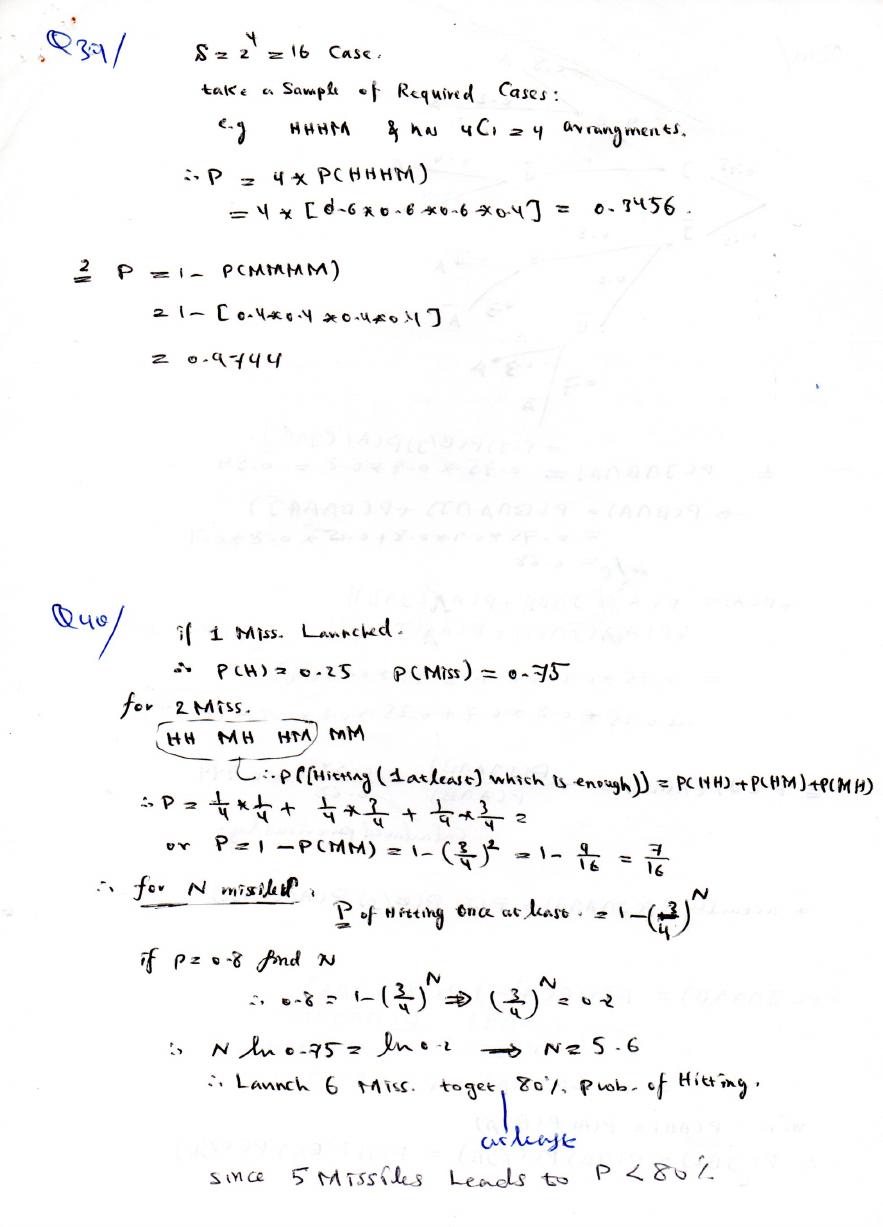 Q39/
S = 2^4 = 16 Case.
take a Sample of Required Cases:
e.g HHHM & has 4C1 = 4 arrangments.
∴ P = 4 * P(HHHM)
= 4 * [0.6 * 0.6 * 0.6 * 0.4] = 0.3456.
2 P = 1 - P(MMMM)
= 1 - [0.4 * 0.4 * 0.4 * 0.4]
= 0.9744
Q40/
if 1 Miss. Launched.
∴ P(H) = 0.25 P(Miss) = 0.75
for 2 Miss.
HH MH HM MM
∴ P([Hitting (1 at least) which is enough]) = P(HH) + P(HM) + P(MH)
∴ P = 1/4 * 1/4 + 1/4 * 3/4 + 1/4 * 3/4 =
or P = 1 - P(MM) = 1 - (3/4)^2 = 1 - 9/16 = 7/16
∴ for N missiled,
P of Hitting once at least. = 1 - (3/4)^N
if P = 0.8 find N
∴ 0.8 = 1 - (3/4)^N ⇒ (3/4)^N = 0.2
∴ N ln 0.75 = ln 0.2 → N = 5.6
∴ Launch 6 Miss. to get 80% Prob. of Hitting.
at least
since 5 Missiles Leads to P < 80%